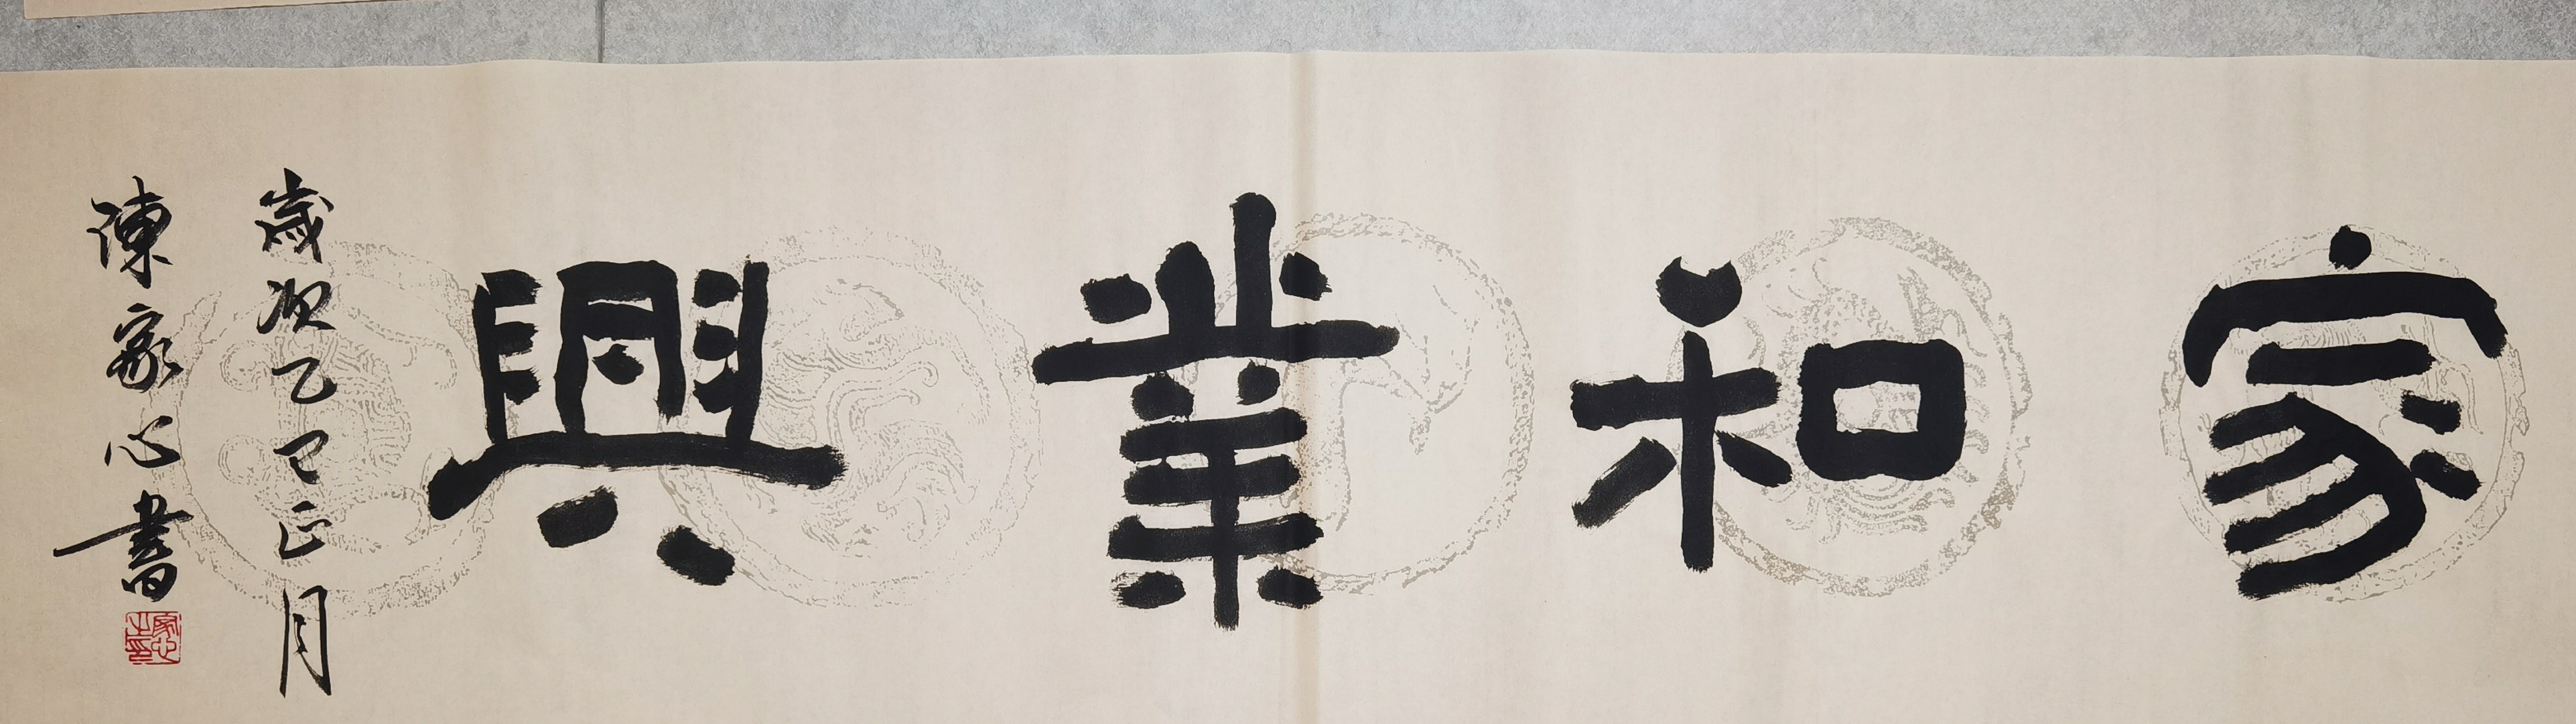 家和業興
歲次乙巳正月
陳家心書